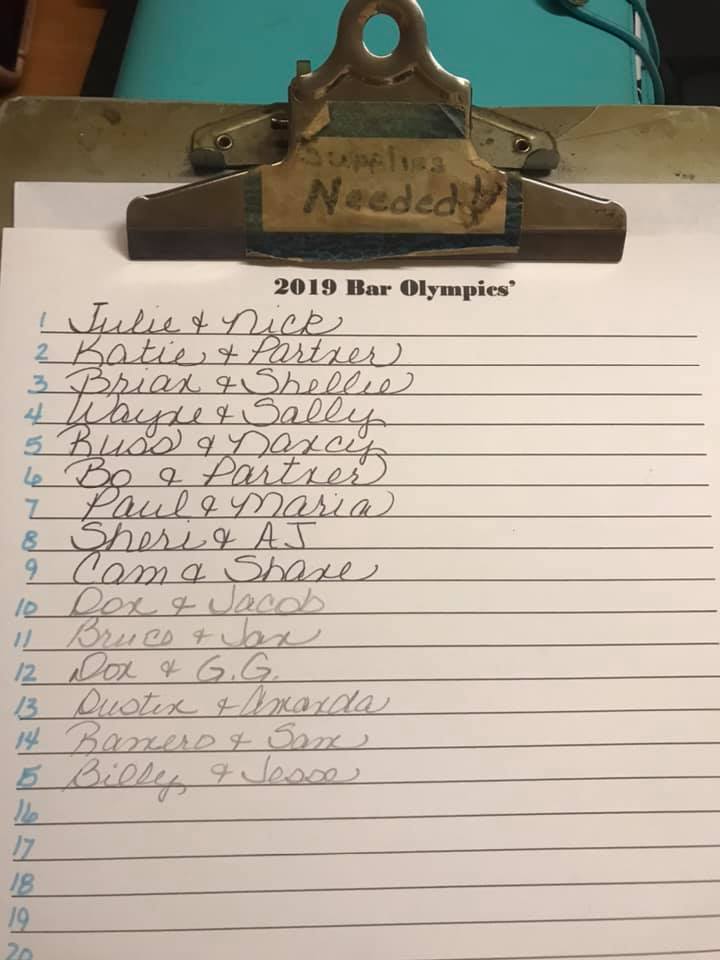 Supplies
Needed!
2019 Bar Olympics'
1 Julie & Nick
2 Katie & Partner
3 Brian & Shellie
4 Wayne & Sally
5 Russ & Nancy
6 Bo & Partner
7 Paul & Maria
8 Sheri & AJ
9 Cam & Shane
10 Don & Jacob
11 Bruce & Jan
12 Don & G.G.
13 Dustin & Amanda
14 Ramero & Sam
5 Billy & Jesse
16
17
18
19
20